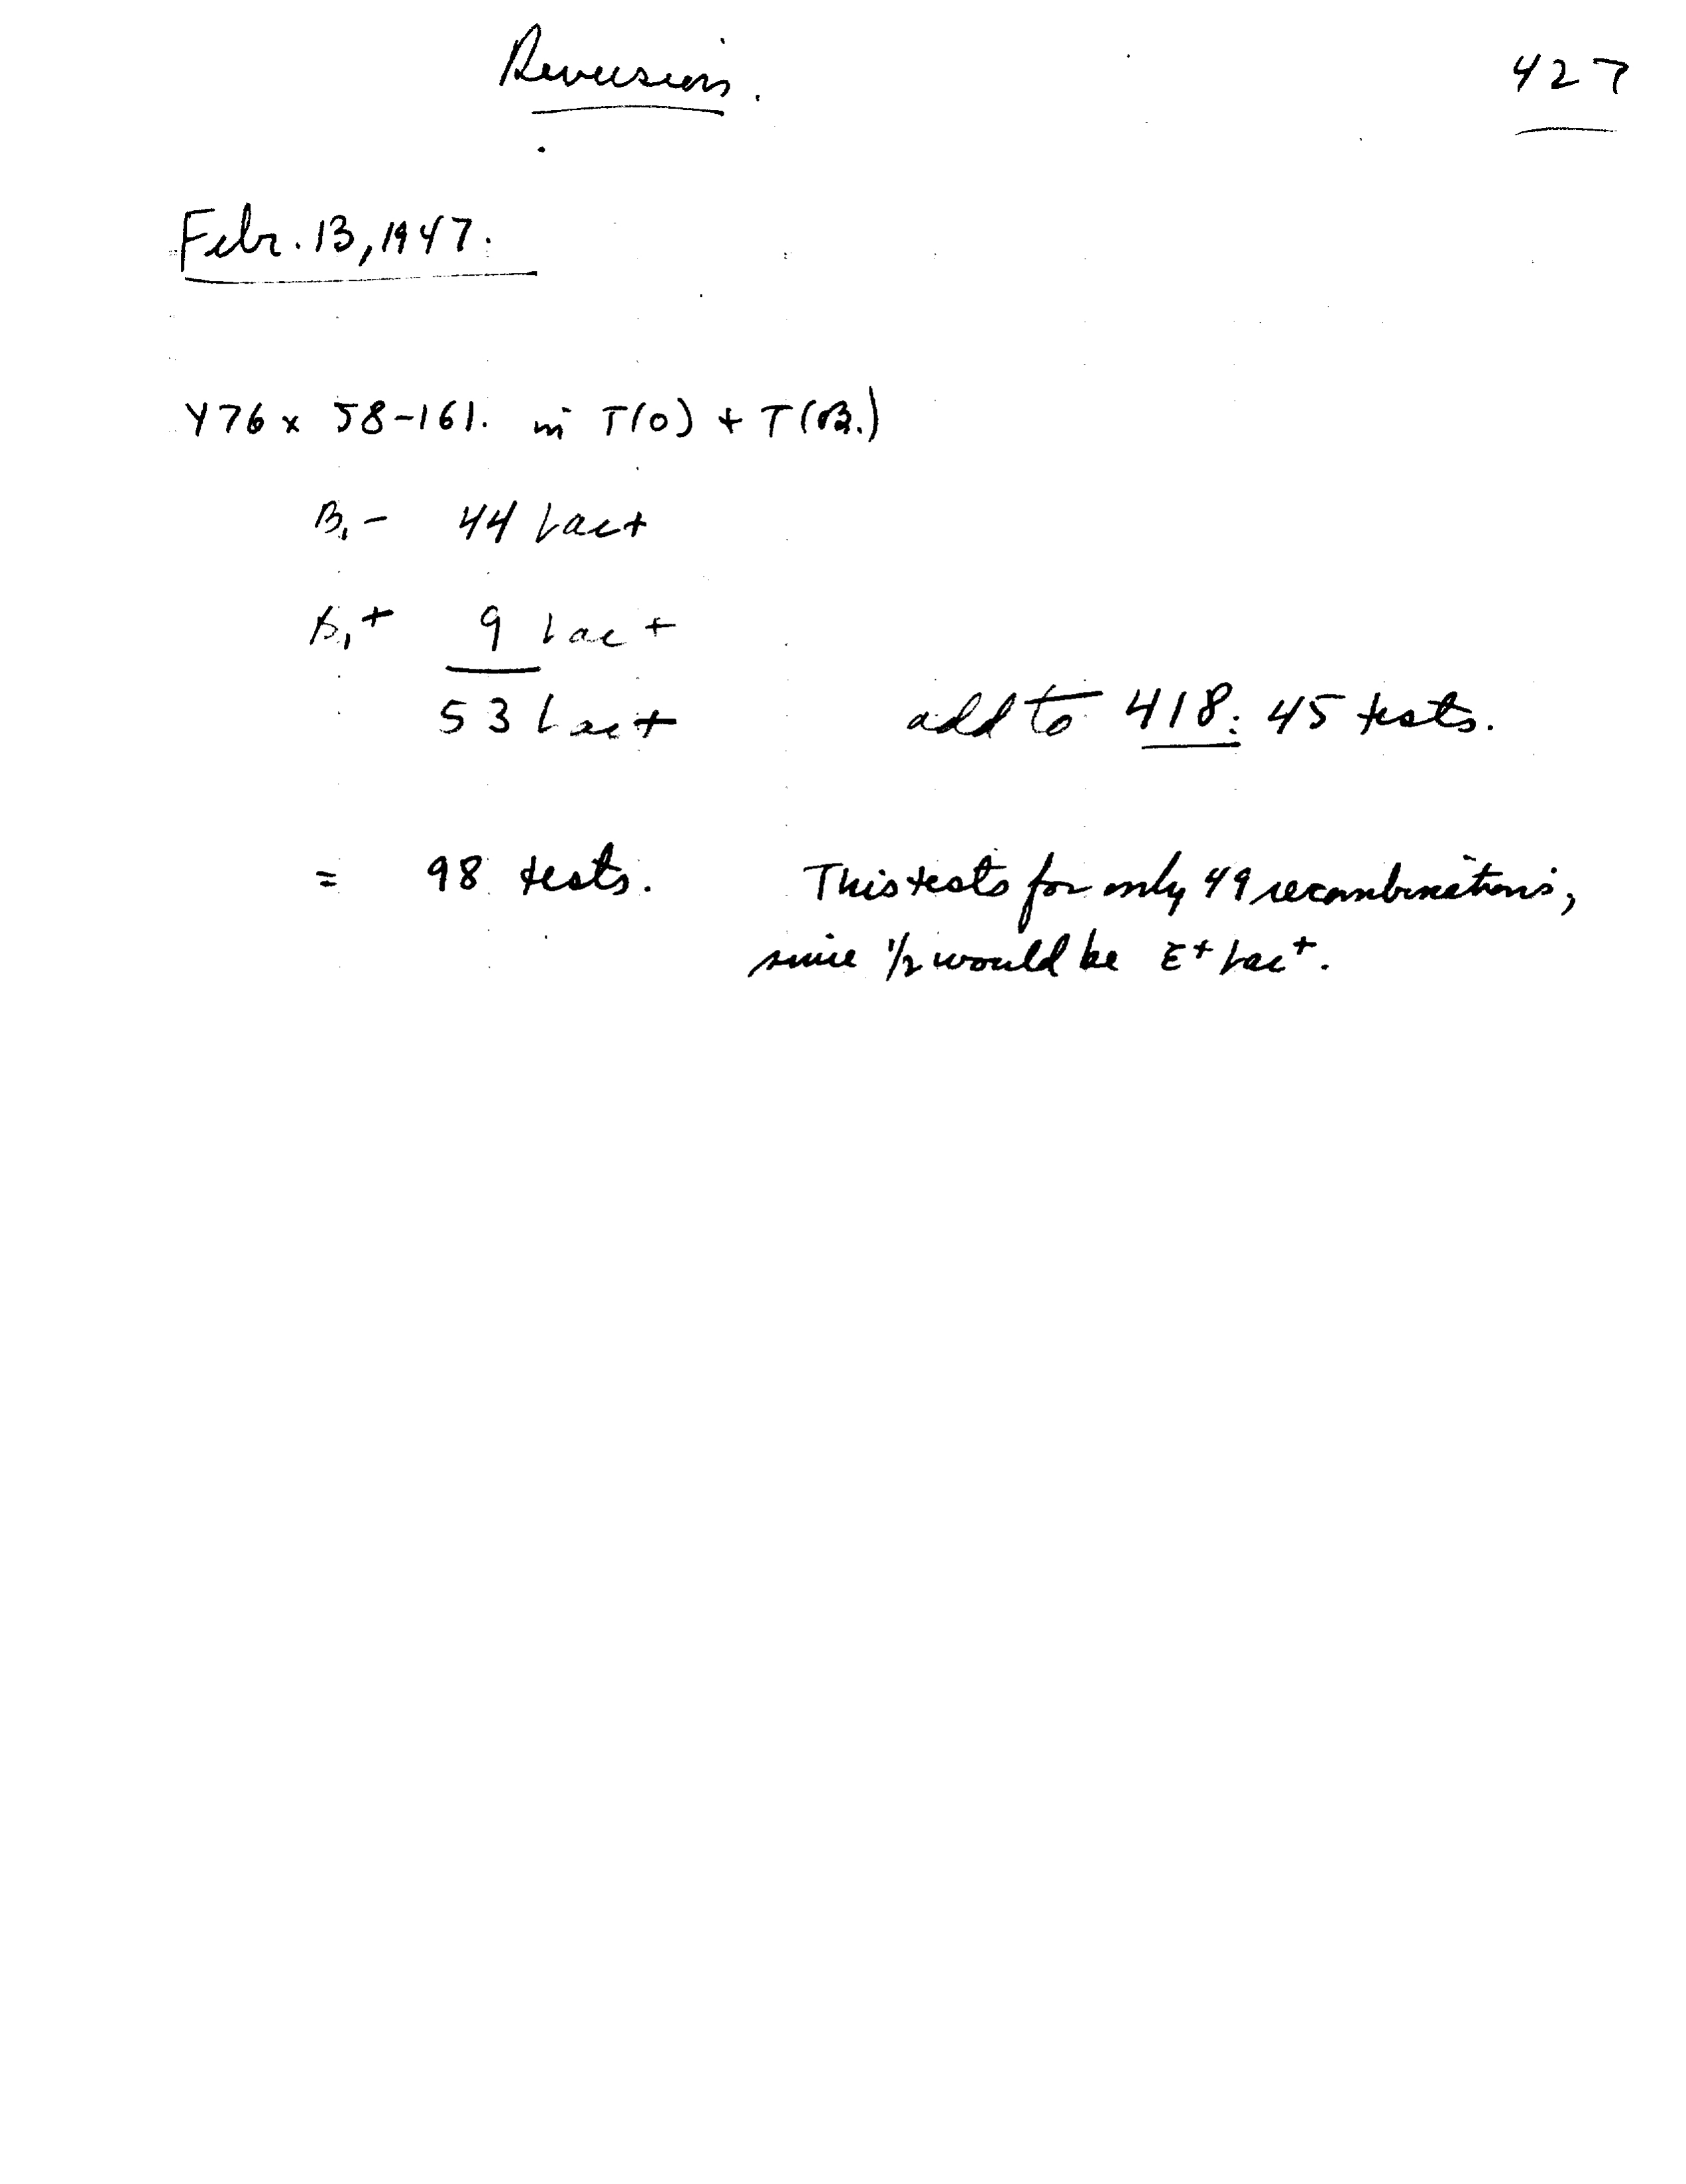 Reversion. 427
Febr. 13, 1947.
Y76 x 58-161. in T(0) + T(B1)
B1- 44 Lac+
B1+ 9 Lac+
53 Lac+ add to 418: 45 tests.
= 98 tests. This tests for only 49 recombinations,
since 1/2 would be E+ Lac+.